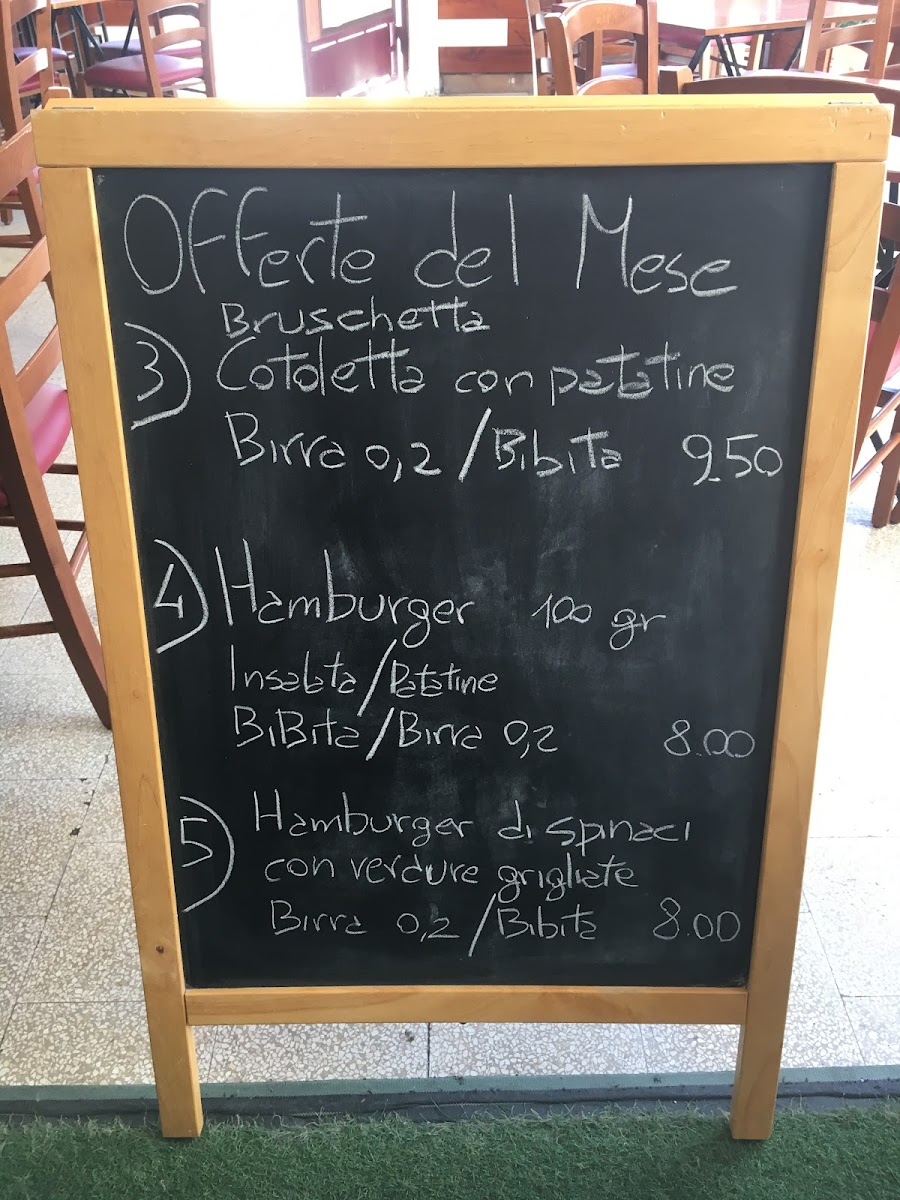 Offerte del Mese
Bruschetta
3) Cotoletta con patatine
Birra 0,2 / Bibita 9.50
4) Hamburger 100 gr
Insalata / Patatine
BiBita / Birra 0,2 8.00
5) Hamburger di spinaci
con verdure grigliate
Birra 0,2 / Bibita 8.00